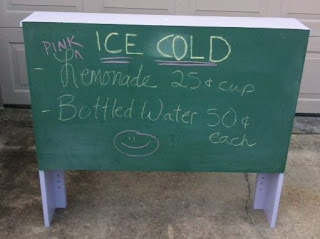 ICE COLD
PINK
- Lemonade 25¢ cup
- Bottled Water 50¢
each